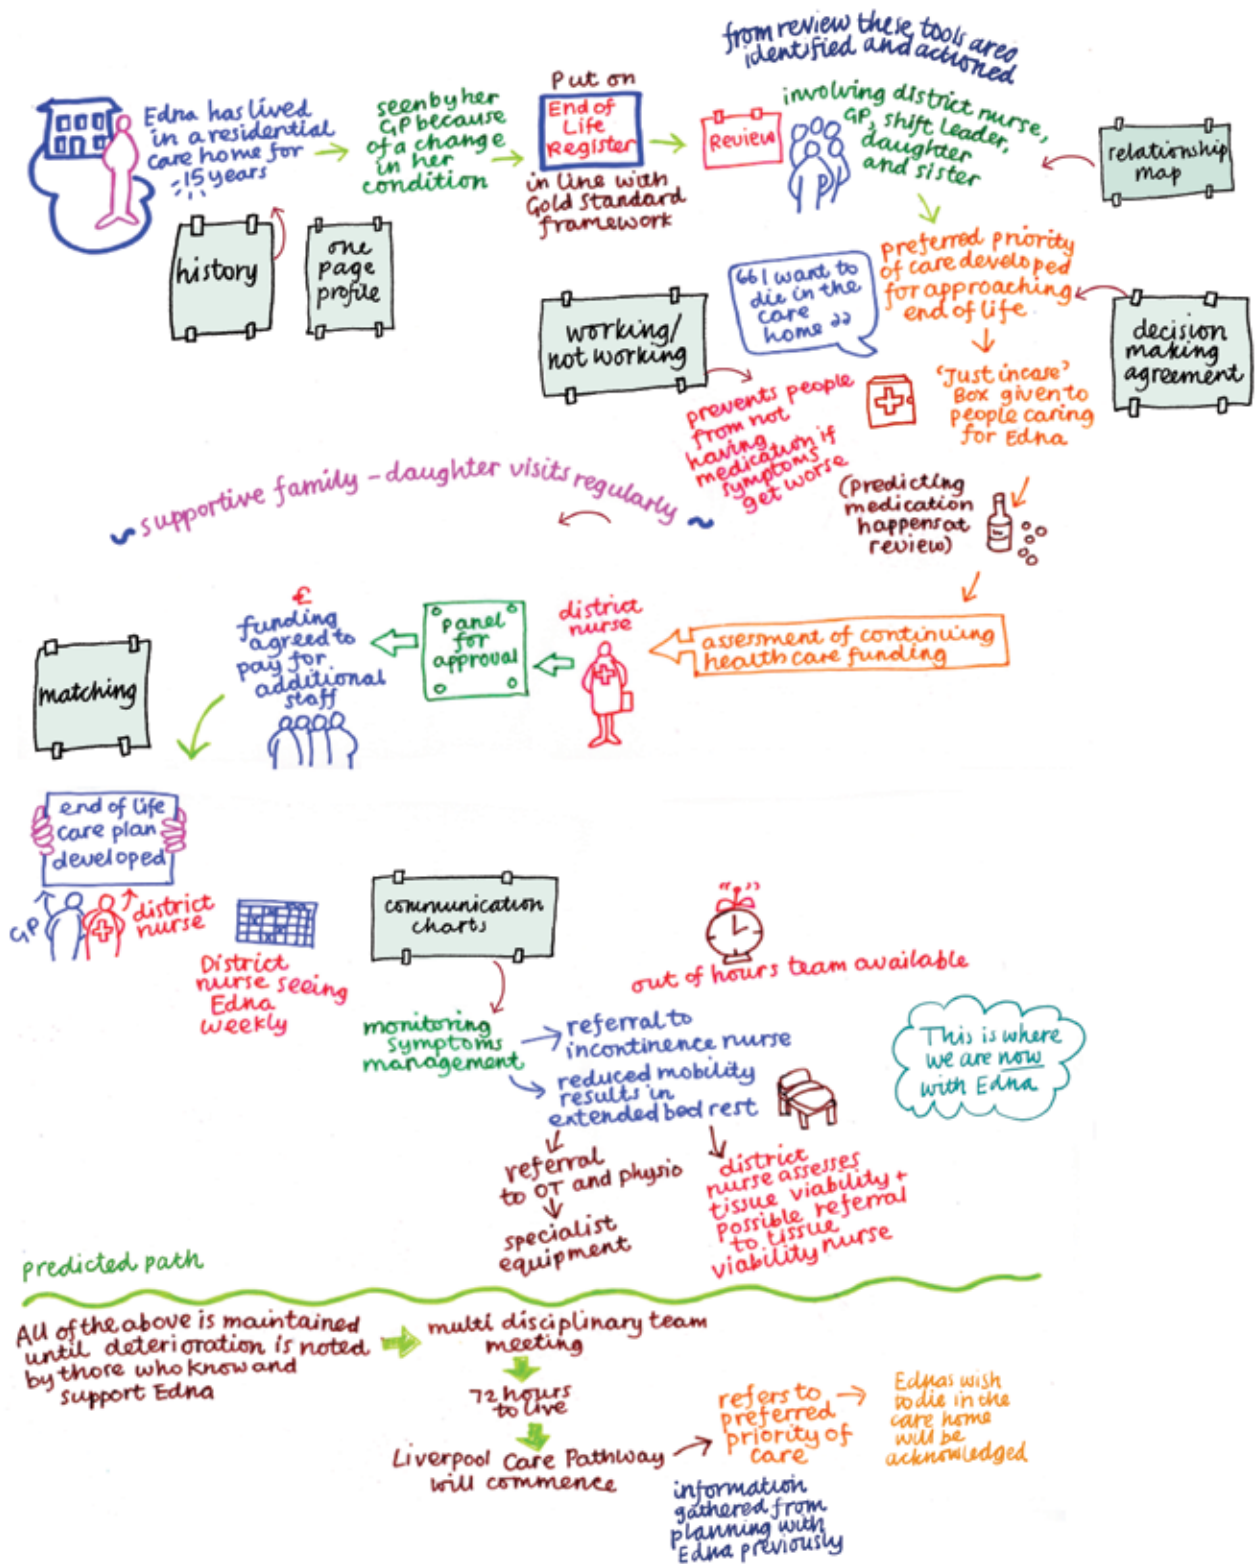 from review these tools area
identified and actioned
Edna has lived
in a residential
care home for
15 years
seen by her
GP because
of a change
in her
condition
Put on
End of
Life
Register
in line with
Gold Standard
framework
Review
involving district nurse,
GP, shift leader,
daughter
and sister
relationship
map
history
one
page
profile
preferred priority
of care developed
for approaching
end of life
“I want to
die in the
care
home ”
working/
not working
decision
making
agreement
prevents people
from not
having
medication if
symptoms
get worse
'Just incase'
Box given to
people caring
for Edna
(predicting
medication
happens at
review)
~ supportive family – daughter visits regularly ~
assessment of continuing
health care funding
district
nurse
panel
for
approval
€
funding
agreed to
pay for
additional
staff
matching
end of life
care plan
developed
GP
district
nurse
District
nurse seeing
Edna
weekly
communication
charts
out of hours team available
monitoring
symptoms
management
referral to
incontinence nurse
reduced mobility
results in
extended bed rest
This is where
we are now
with Edna
referral
to OT and physio
specialist
equipment
district
nurse assesses
tissue viability +
possible referral
to tissue
viability nurse
predicted path
All of the above is maintained
until deterioration is noted
by those who know and
support Edna
multi disciplinary team
meeting
72 hours
to live
Liverpool Care Pathway
will commence
refers to
preferred
priority of
care
Ednas wish
to die in the
care home
will be
acknowledged
information
gathered from
planning with
Edna previously